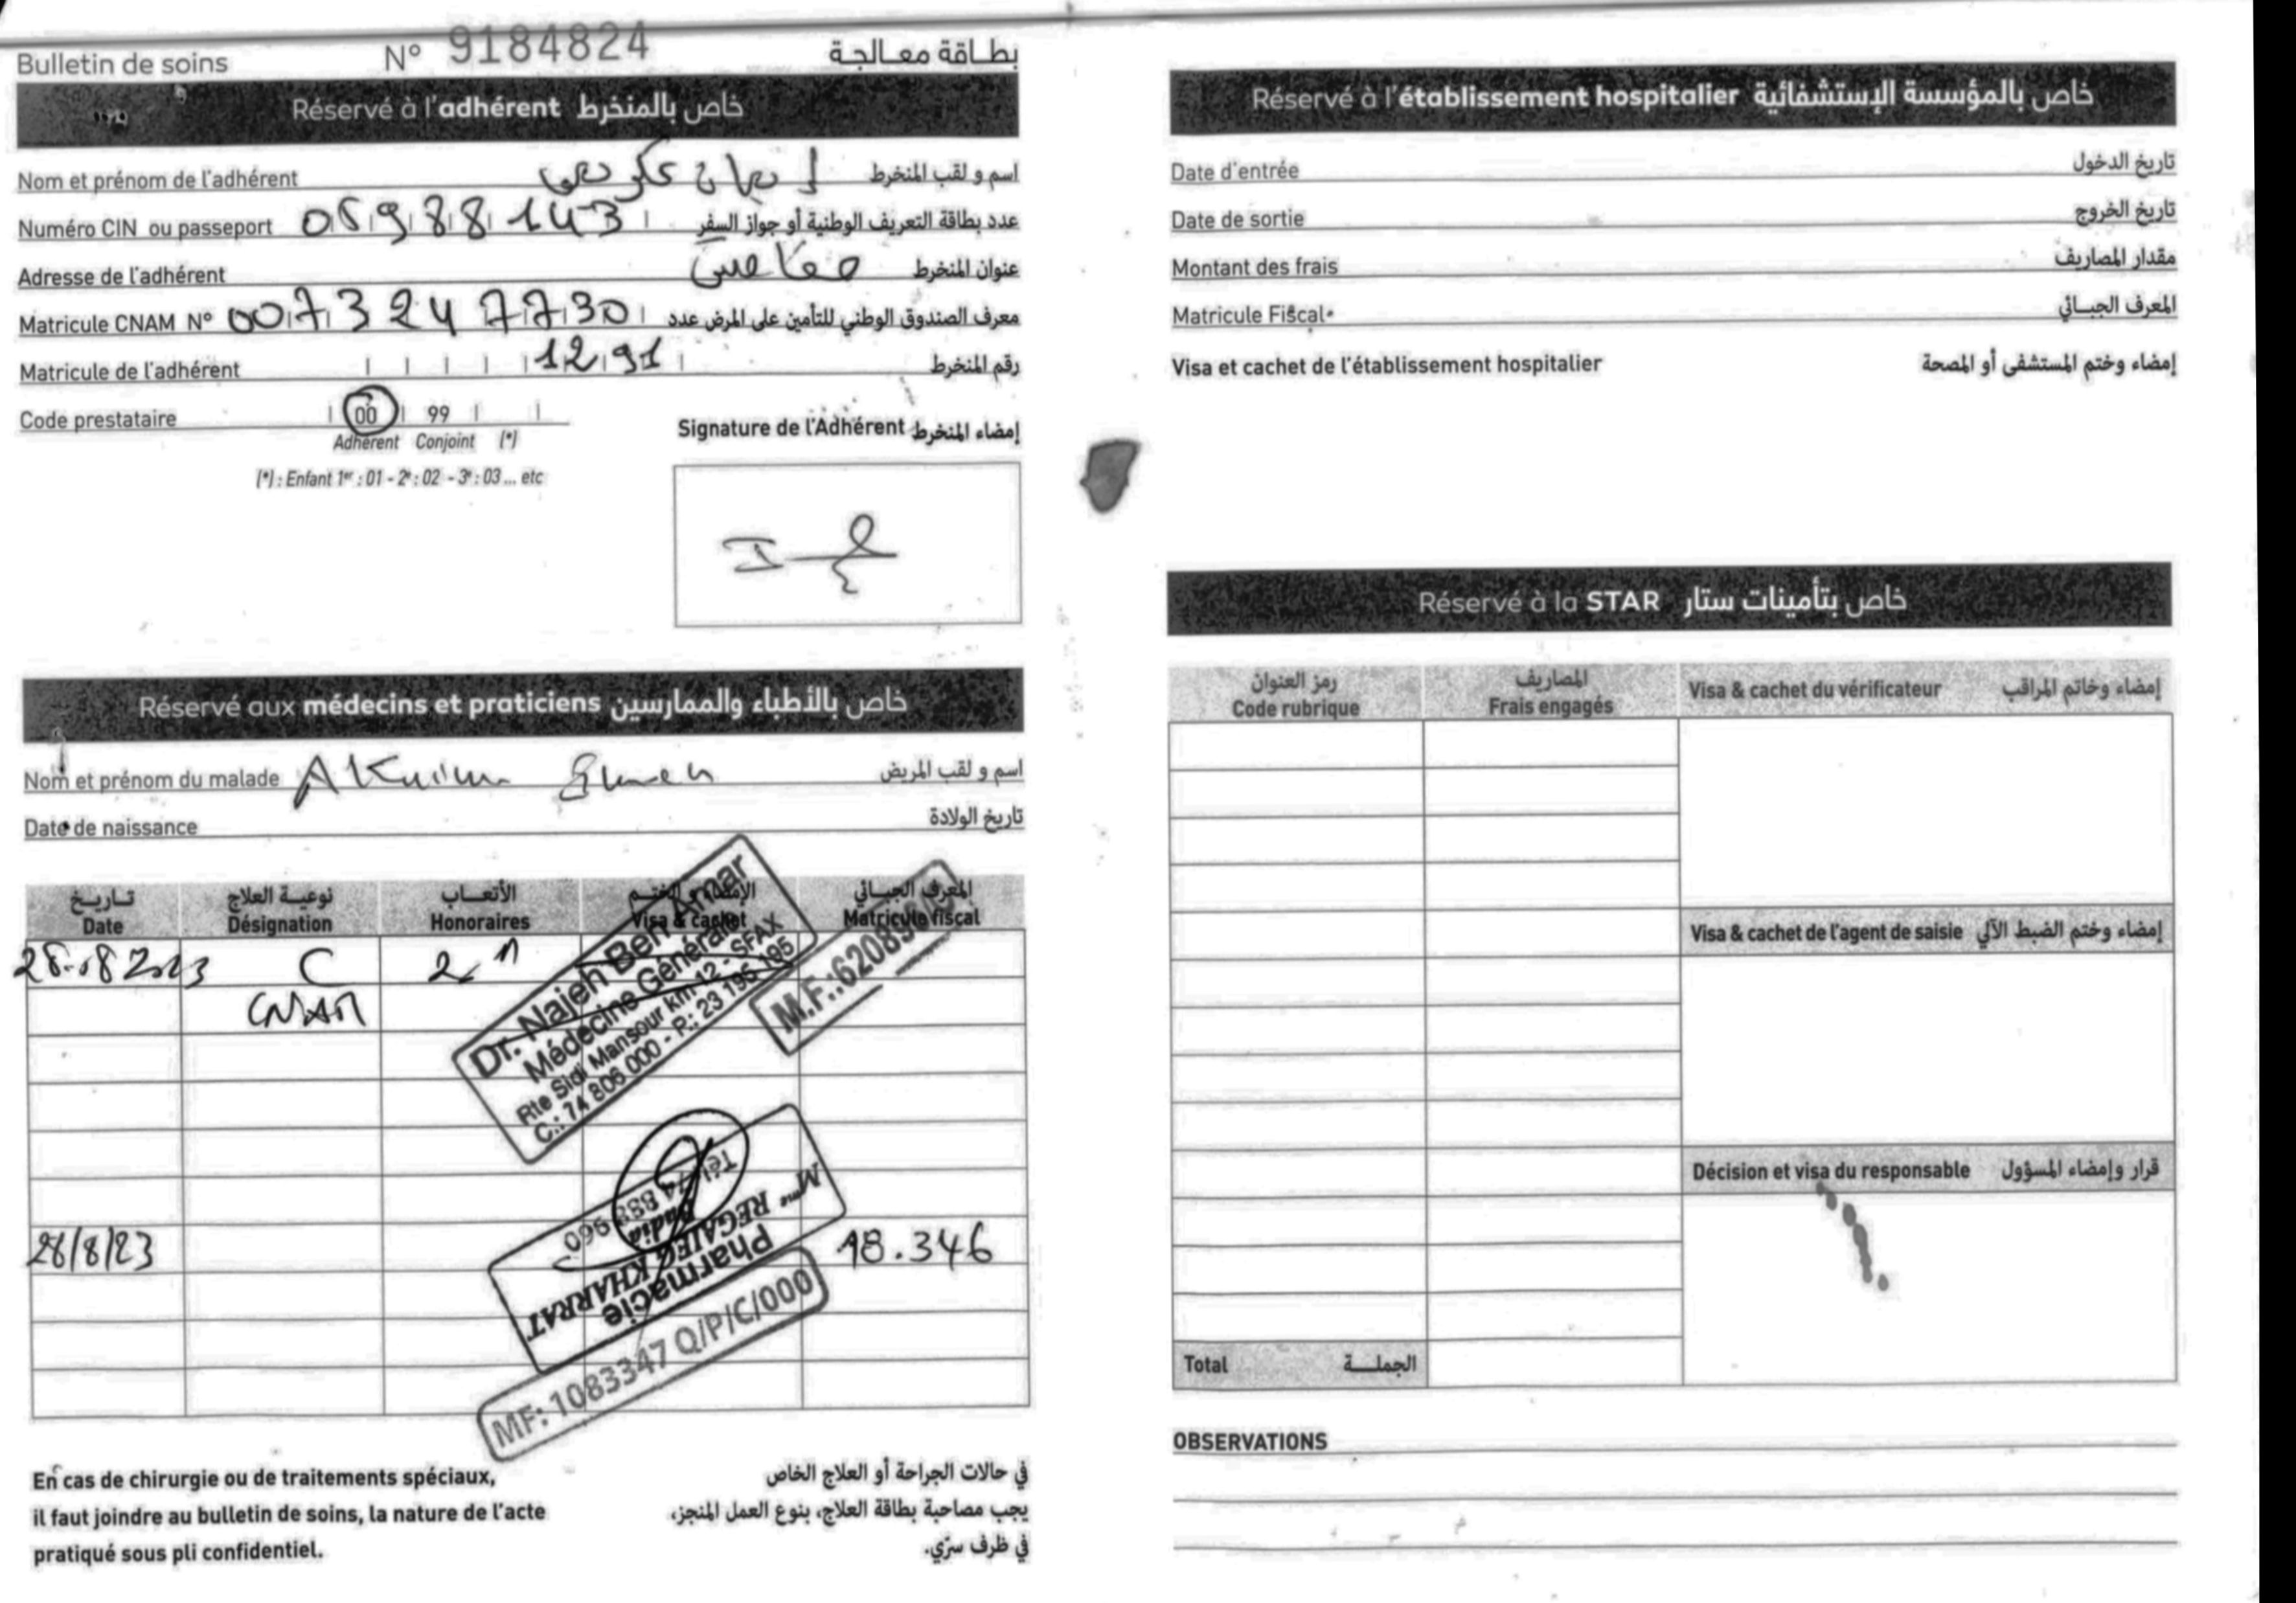 Bulletin de soins N° 9184824 بطاقة معالجة
Réservé à l'adhérent خاص بالمنخرط
Nom et prénom de l'adhérent اسم و لقب المنخرط
Numéro CIN ou passeport 05988143 عدد بطاقة التعريف الوطنية أو جواز السفر
Adresse de l'adhérent صفاقس عنوان المنخرط
Matricule CNAM N° 0073247730 معرف الصندوق الوطني للتأمين على المرض عدد
Matricule de l'adhérent 1291 رقم المنخرط
Code prestataire 00 99
Adhérent Conjoint (*)
(*) : Enfant 1er : 01 - 2e : 02 - 3e : 03 ... etc
Signature de l'Adhérent إمضاء المنخرط
Réservé aux médecins et praticiens خاص بالأطباء والممارسين
Nom et prénom du malade اسم و لقب المريض
Date de naissance تاريخ الولادة
تاريخ نوعية العلاج الأتعاب الإمضاء و الختم المعرف الجبائي
Date Désignation Honoraires Visa & cachet Matricule fiscal
28.08.2023 C
CNAM
Dr. Najeh Ben Amar
Médecine Générale
Rte Sidi Mansour km 12 - SFAX
C.: 74 806 000 - P.: 23 195 195
28/8/23 18.346
Pharmacie
Mme REGAIEG KHARRAT
Badia
MF: 1083347 Q/P/C/000
En cas de chirurgie ou de traitements spéciaux,
il faut joindre au bulletin de soins, la nature de l'acte
pratiqué sous pli confidentiel.
في حالات الجراحة أو العلاج الخاص
يجب مصاحبة بطاقة العلاج، بنوع العمل المنجز،
في ظرف سرّي.
Réservé à l'établissement hospitalier خاص بالمؤسسة الإستشفائية
Date d'entrée تاريخ الدخول
Date de sortie تاريخ الخروج
Montant des frais مقدار المصاريف
Matricule Fiscal المعرف الجبائي
Visa et cachet de l'établissement hospitalier إمضاء وختم المستشفى أو المصحة
Réservé à la STAR خاص بتأمينات ستار
رمز العنوان المصاريف
Code rubrique Frais engagés Visa & cachet du vérificateur إمضاء وخاتم المراقب
Visa & cachet de l'agent de saisie إمضاء وختم الضبط الآلي
Décision et visa du responsable قرار وإمضاء المسؤول
Total الجملة
OBSERVATIONS